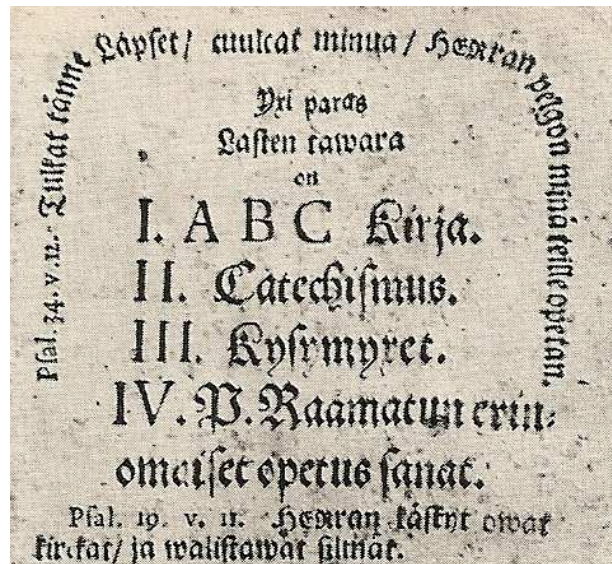 Psal. 34. v. 12. Tulkat tänne Lapset/ cuulcat minua/ HERran pelgon minä teille opetan.
Yxi paras
Lasten tawara
on
I. A B C Kirja.
II. Catechismus.
III. Kysymyxet.
IV. P. Raamatun erin-
omaiset opetus sanat.
Psal. 19. v. 11. HERran käskyt owat
kirckat/ ja walistawat silmät.